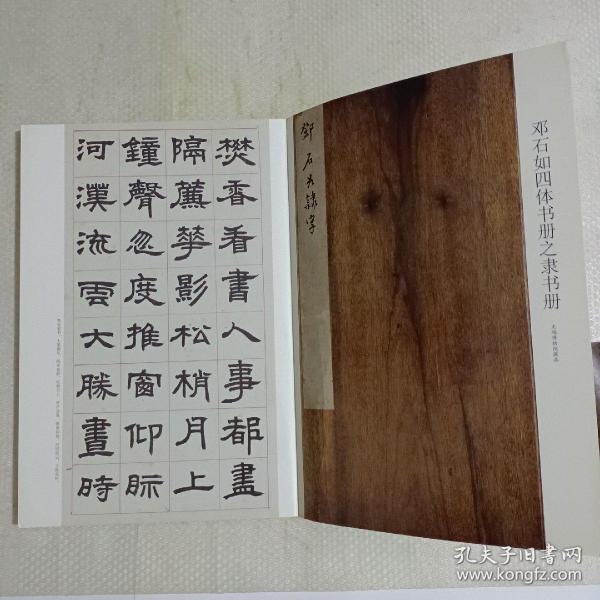 焚香看書人事都盡
隔薕華影松梢月上
鐘聲忽度推窗仰眎
河漢流雲大勝晝時
邓石如四体书册之隶书册
无锡博物院藏品
鄧石如隸字
孔夫子旧书网
www.kongfz.com